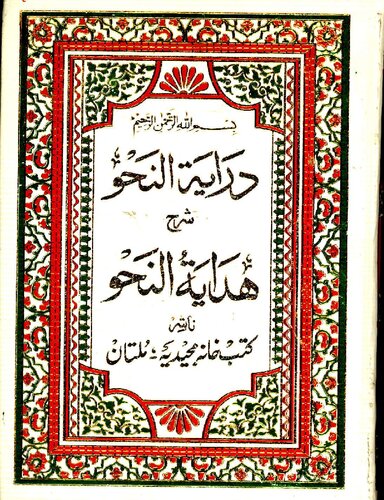 بسم الله الرحمن الرحيم
دراية النحو
شرح
هداية النحو
ناشر
كتب خانه مجيديه ۔ ملتان